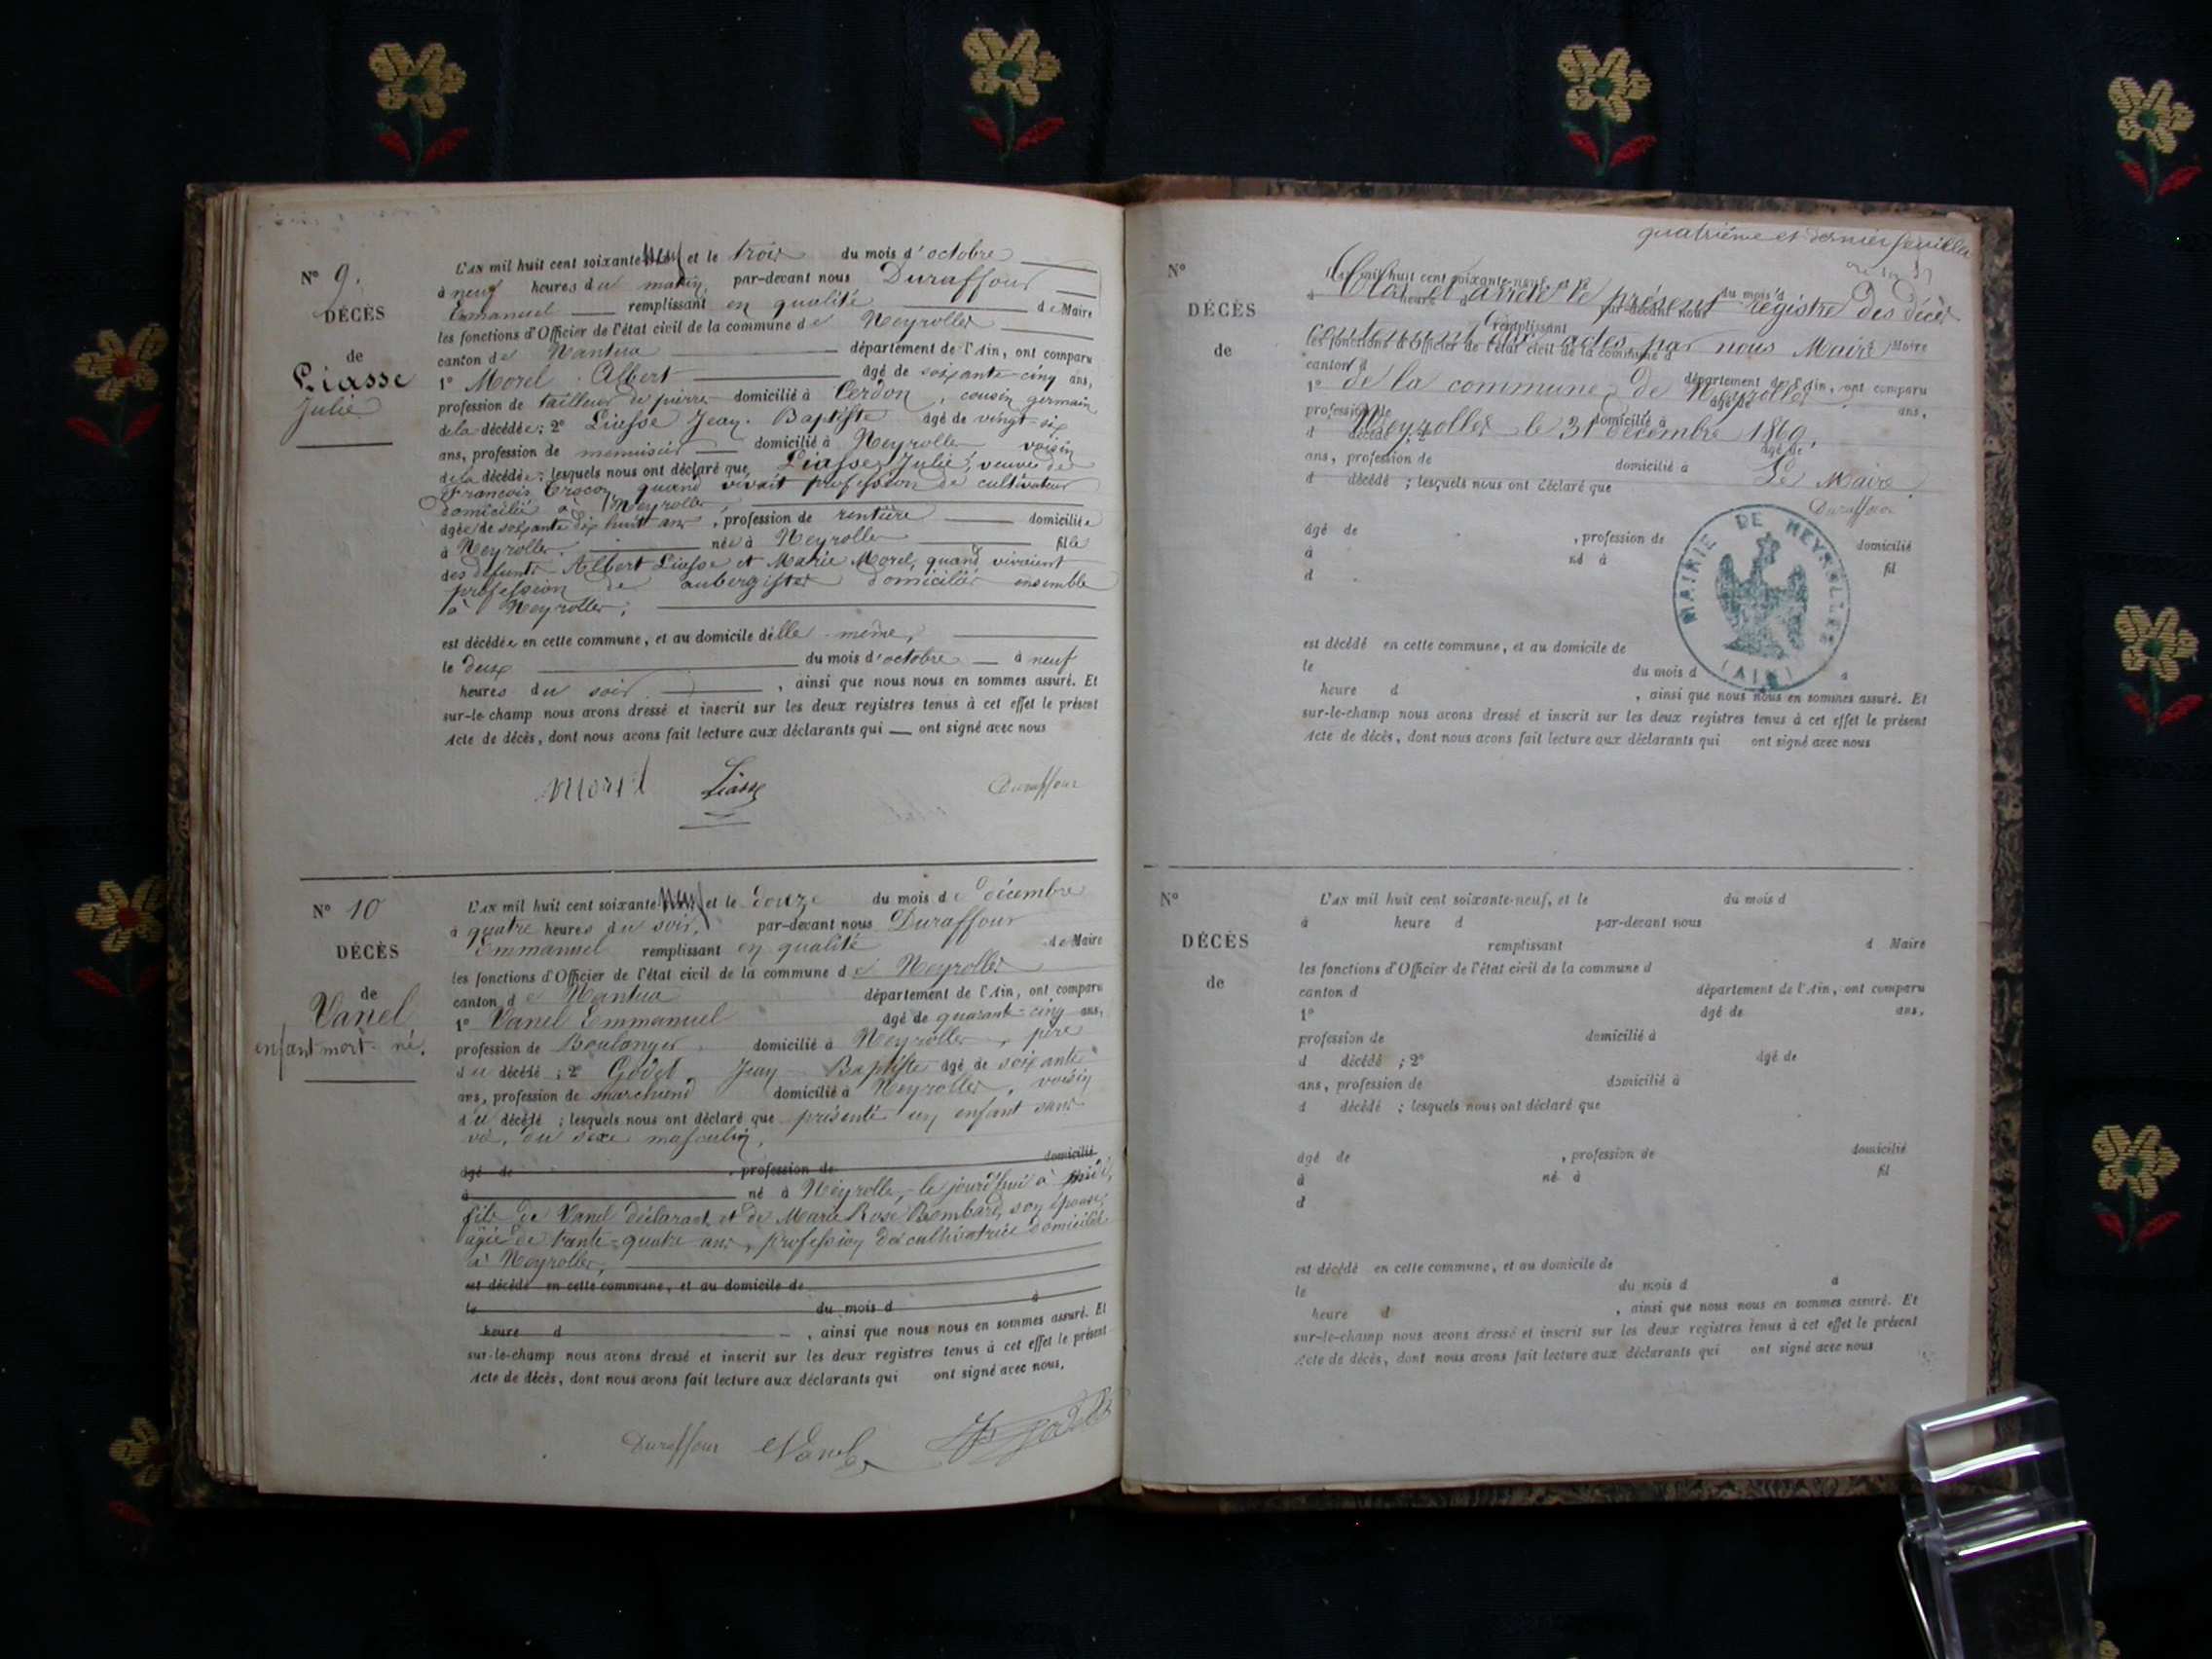 N° 9.
DÉCÈS
de
Liasse
Julie
L'AN mil huit cent soixante neuf et le trois du mois d'octobre
à neuf heures du matin, par-devant nous Duraffour
Emmanuel remplissant en qualité de Maire
les fonctions d'Officier de l'état civil de la commune de Neyrolles
canton de Nantua département de l'Ain, ont comparu
1° Morel Albert âgé de soixante-cinq ans,
profession de tailleur de pierre domicilié à Cerdon, cousin germain
de la décédée ; 2° Liasse Jean-Baptiste âgé de vingt-six
ans, profession de menuisier domicilié à Neyrolles voisin
de la décédée ; lesquels nous ont déclaré que Liasse Julie, veuve de
François quand vivait profession de cultivateur
domicilié à Neyrolles,
âgée de soixante dix huit ans, profession de rentière domiciliée
à Neyrolles, née à Neyrolles fille
des défunts Albert Liasse et Marie Morel, quand vivaient
profession de aubergistes domiciliés ensemble
à Neyrolles ;
est décédée en cette commune, et au domicile d'elle-même,
le deux du mois d'octobre à neuf
heures du soir, ainsi que nous nous en sommes assuré. Et
sur-le-champ nous avons dressé et inscrit sur les deux registres tenus à cet effet le présent
Acte de décès, dont nous avons fait lecture aux déclarants qui ont signé avec nous
Morel Liasse Duraffour
N° 10
DÉCÈS
de
Vanel
enfant mort-né.
L'AN mil huit cent soixante neuf et le douze du mois de décembre
à quatre heures du soir, par-devant nous Duraffour
Emmanuel remplissant en qualité de Maire
les fonctions d'Officier de l'état civil de la commune de Neyrolles
canton de Nantua département de l'Ain, ont comparu
1° Vanel Emmanuel âgé de quarante-cinq ans,
profession de Boulanger, domicilié à Neyrolles, père
du décédé ; 2° Godet, Jean Baptiste âgé de soixante
ans, profession de marchand domicilié à Neyrolles, voisin
du décédé ; lesquels nous ont déclaré que présenté un enfant sans
vie, du sexe masculin,
âgé de , profession de domicilié
à né à Neyrolles, le jourd'hui à midi,
fils de Vanel déclarant et de Marie Rose Bombard, son épouse,
âgée de trente-quatre ans, profession de cultivatrice domiciliée
à Neyrolles,
est décédé en cette commune, et au domicile de
le du mois d à
heure d , ainsi que nous nous en sommes assuré. Et
sur-le-champ nous avons dressé et inscrit sur les deux registres tenus à cet effet le présent
Acte de décès, dont nous avons fait lecture aux déclarants qui ont signé avec nous.
Duraffour Vanel
quatrième et dernier feuillet
N°
DÉCÈS
de
L'AN mil huit cent soixante-neuf, et le du mois d
à heure d par-devant nous
remplissant d Maire
Clos et arrêté le présent registre des décès
contenant dix actes, par nous Maire
les fonctions d'Officier de l'état civil de la commune d
canton d département de l'Ain, ont comparu
de la commune de Neyrolles
1° âgé de ans,
profession de domicilié à
Neyrolles le 31 décembre 1869.
d décédé ; 2° âgé de
ans, profession de domicilié à
Le Maire
d décédé ; lesquels nous ont déclaré que
Duraffour
âgé de , profession de domicilié
à né à fil
d
MAIRIE DE NEYROLLES
(AIN)
est décédé en cette commune, et au domicile de
le du mois d à
heure d , ainsi que nous nous en sommes assuré. Et
sur-le-champ nous avons dressé et inscrit sur les deux registres tenus à cet effet le présent
Acte de décès, dont nous avons fait lecture aux déclarants qui ont signé avec nous
N°
DÉCÈS
de
L'AN mil huit cent soixante-neuf, et le du mois d
à heure d par-devant nous
remplissant d Maire
les fonctions d'Officier de l'état civil de la commune d
canton d département de l'Ain, ont comparu
1° âgé de ans,
profession de domicilié à
d décédé ; 2° âgé de
ans, profession de domicilié à
d décédé ; lesquels nous ont déclaré que
âgé de , profession de domicilié
à né à fil
d
est décédé en cette commune, et au domicile de
le du mois d à
heure d , ainsi que nous nous en sommes assuré. Et
sur-le-champ nous avons dressé et inscrit sur les deux registres tenus à cet effet le présent
Acte de décès, dont nous avons fait lecture aux déclarants qui ont signé avec nous